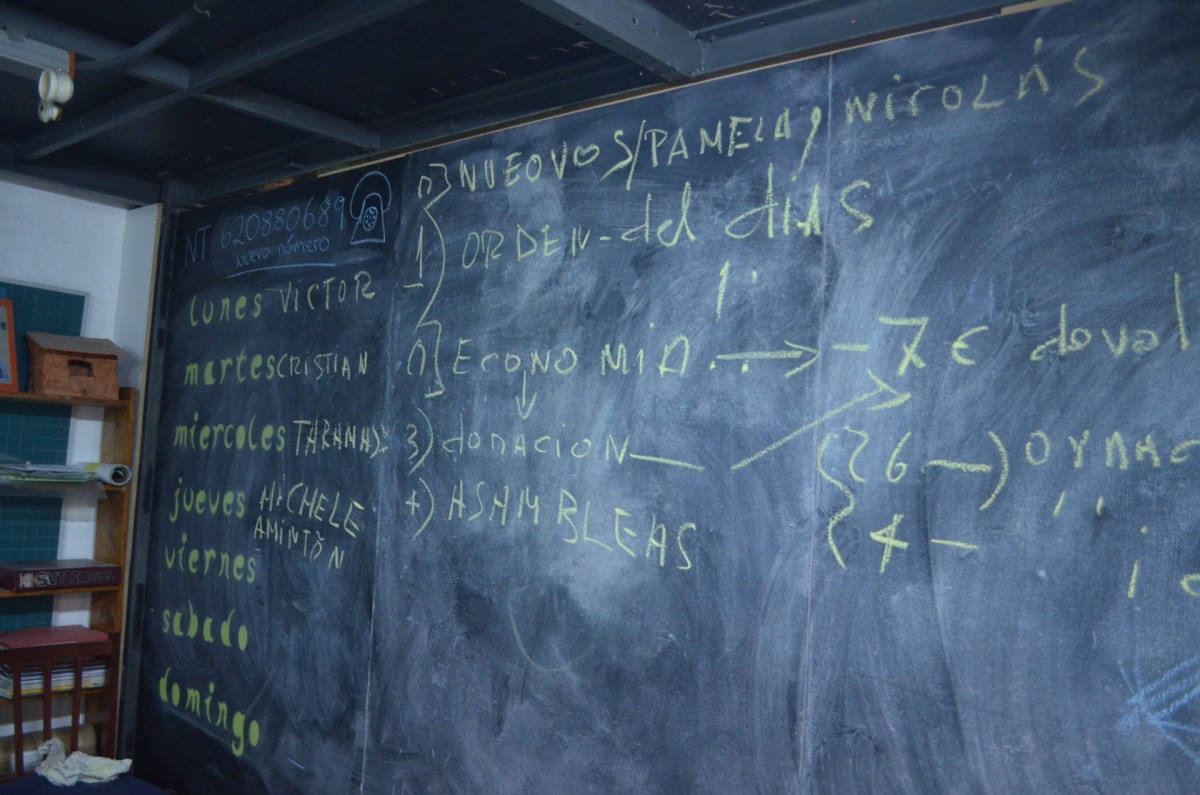 NT 620880689
nuevo número
lunes VICTOR
martes CRISTIAN
miercoles
jueves MICHELE
AMINTÖN
viernes
sabado
domingo
NUEOVOS/PAMELA y NICOLÁS
1) ORDEN-del días
ECONOMIA. → - 7 € doval
3) donACION
4) ASHMBLEAS
6 -)
4 -